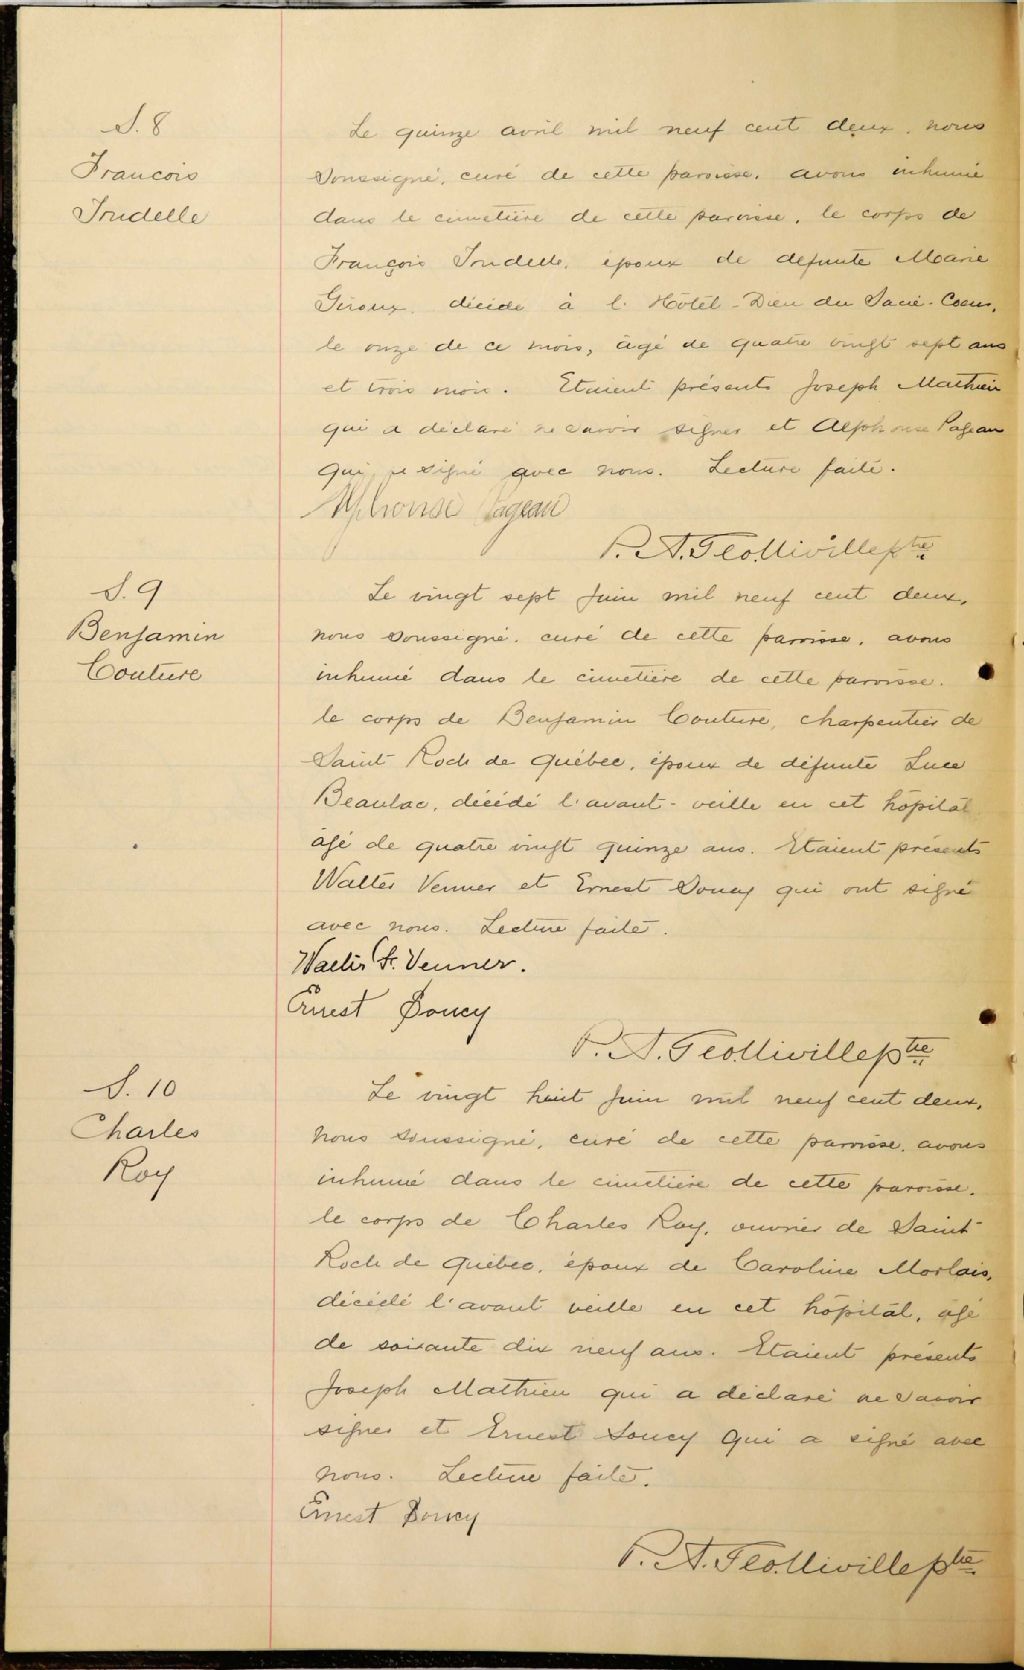 S. 8
Francois
Trudelle
Le quinze avril mil neuf cent deux, nous
soussigné, curé de cette paroisse, avons inhumé
dans le cimetière de cette paroisse, le corps de
François Trudelle, époux de défunte Marie
Giroux, décédé à l'Hôtel-Dieu du Sacré-Coeur,
le onze de ce mois, âgé de quatre vingt sept ans
et trois mois. Etaient présents Joseph Mathieu
qui a déclaré ne savoir signer et Alphonse Pageau
qui a signé avec nous. Lecture faite.
Alphonse Pageau
P. A. ptre
S. 9
Benjamin
Couture
Le vingt sept Juin mil neuf cent deux,
nous soussigné, curé de cette paroisse, avons
inhumé dans le cimetière de cette paroisse,
le corps de Benjamin Couture, charpentier de
Saint Roch de Québec, époux de défunte Luce
Beaulac, décédé l'avant-veille en cet hôpital
âgé de quatre vingt quinze ans. Etaient présents
Walter Venner et Ernest Soucy qui ont signé
avec nous. Lecture faite.
Walter Venner.
Ernest Soucy
P. A. ptre
S. 10
Charles
Roy
Le vingt huit Juin mil neuf cent deux,
nous soussigné, curé de cette paroisse, avons
inhumé dans le cimetière de cette paroisse,
le corps de Charles Roy, ouvrier de Saint
Roch de Québec, époux de Caroline Morlais,
décédé l'avant veille en cet hôpital, âgé
de soixante dix neuf ans. Etaient présents
Joseph Mathieu qui a déclaré ne savoir
signer et Ernest Soucy qui a signé avec
nous. Lecture faite.
Ernest Soucy
P. A. ptre